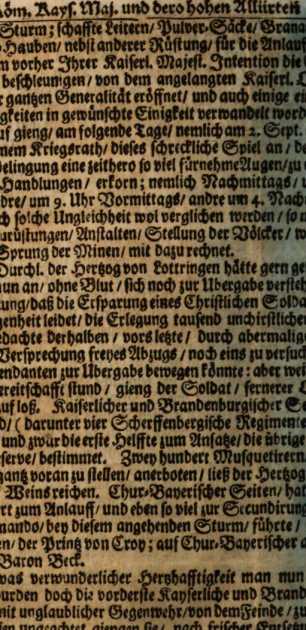 Röm. Kays. Maj. und dero hohen Alliirten
Sturm; schaffte Leitern/ Pulver-Säcke/ Grana
Hauben/ nebst anderer Rüstung/ für die Anlau
m vorher Ihrer Kaiserl. Majest. Intention die
beschleunigen/ von dem angelangten Kaiserl. C
r gantzen Generalität eröffnet/ und auch einige
gkeiten in gewünschte Einigkeit verwandelt word
uf gieng/ am folgende Tage/ nemlich am 2. Sept.
nem Kriegsrath/ dieses schreckliche Spiel an/ de
elingung eine zeithero so viel fürnehme Augen/ zu
Handlungen/ erkorn; nemlich Nachmittags/
dre/ um 9. Uhr Vormittags/ andre um 4. Nach
ch solche Ungleichheit wol verglichen werden/ so
urüstungen/ Anstalten/ Stellung der Völcker/ w
Sprung der Minen/ mit dazu rechnet.
Durchl. der Hertzog von Lottringen hätte gern ge
un an/ ohne Blut/ sich noch zur Ubergabe versteh
ung/ daß die Ersparung eines Christlichen Solda
genheit leidet/ die Erlegung tausend unchristlicher
edachte derhalben/ vors letzte/ durch abermalige
Versprechung freyes Abzugs/ noch eins zu versuc
endanten zur Ubergabe bewegen könnte: aber wei
ereitschafft stund/ gieng der Soldat/ fernerer
uf loß. Kaiserlicher und Brandenburgischer Se
d/ (darunter vier Scherffenbergische Regimente
und zwar die erste Helffte zum Ansatze/ die übrige
serve/ bestimmet. Zwey hundert Musquetirern
gantz voran zu stellen/ anerboten/ ließ der Hertzog
Weins reichen. Chur-Bayerischer Seiten/ hat
rt zum Anlauff/ und eben so viel zur Secundirung
mando/ bey diesem angehenden Sturm/ führte/
en/ der Printz von Croy; auf Chur-Bayerischer
Baron Beck.
was verwunderlicher Hertzhafftigkeit man nun
urden doch die vorderste Kayserliche und Brand
mit unglaublicher Gegenwehr/ von dem Feinde/ zu
ungeachtet giengen sie/ nach frischer